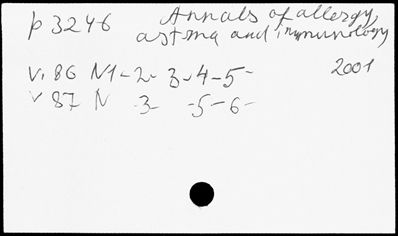 p 3246 Annals of allergy,
astma and immunology
v. 86 N1-2- 3-4-5- 2001
v 87 N 3- -5-6-